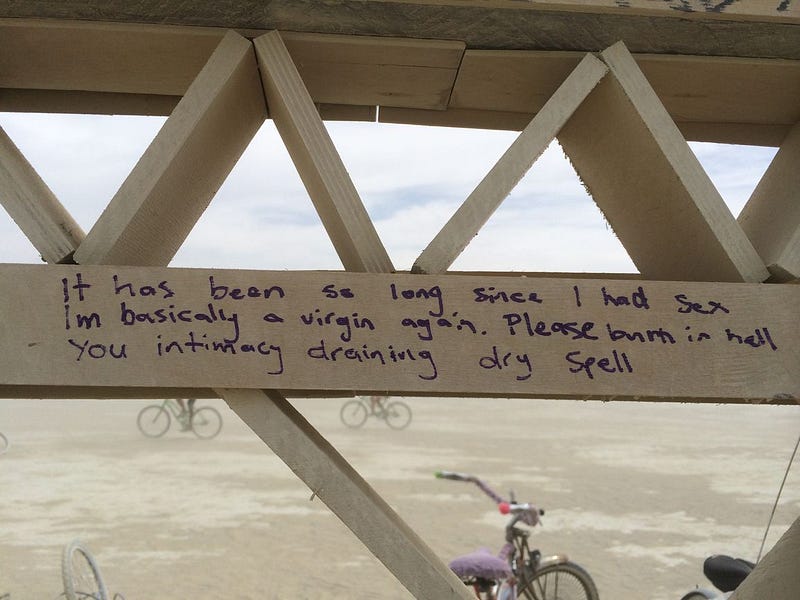 It has been so long since I had sex
Im basically a virgin again. Please burn in hell
You intimacy draining dry spell